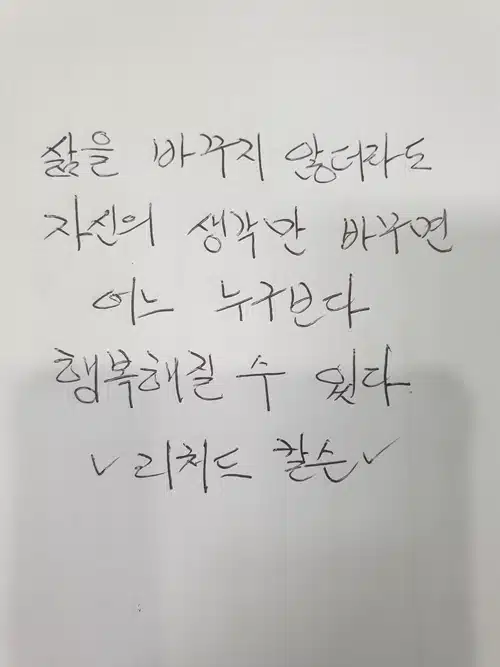 삶을 바꾸지 않더라도
자신의 생각만 바꾸면
어느 누구보다
행복해질 수 있다
✓리치드 칼슨✓